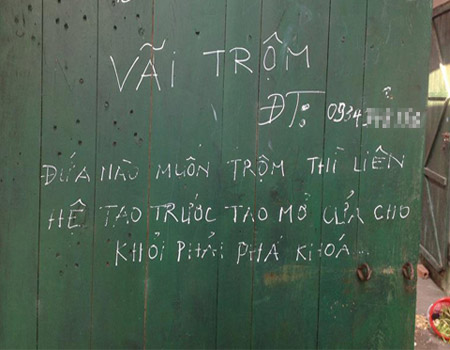 VÃI TRỘM
ĐT: 0934
ĐỨA NÀO MUỐN TRỘM THÌ LIÊN
HỆ TAO TRƯỚC TAO MỞ CỬA CHO
KHỎI PHẢI PHÁ KHOÁ...